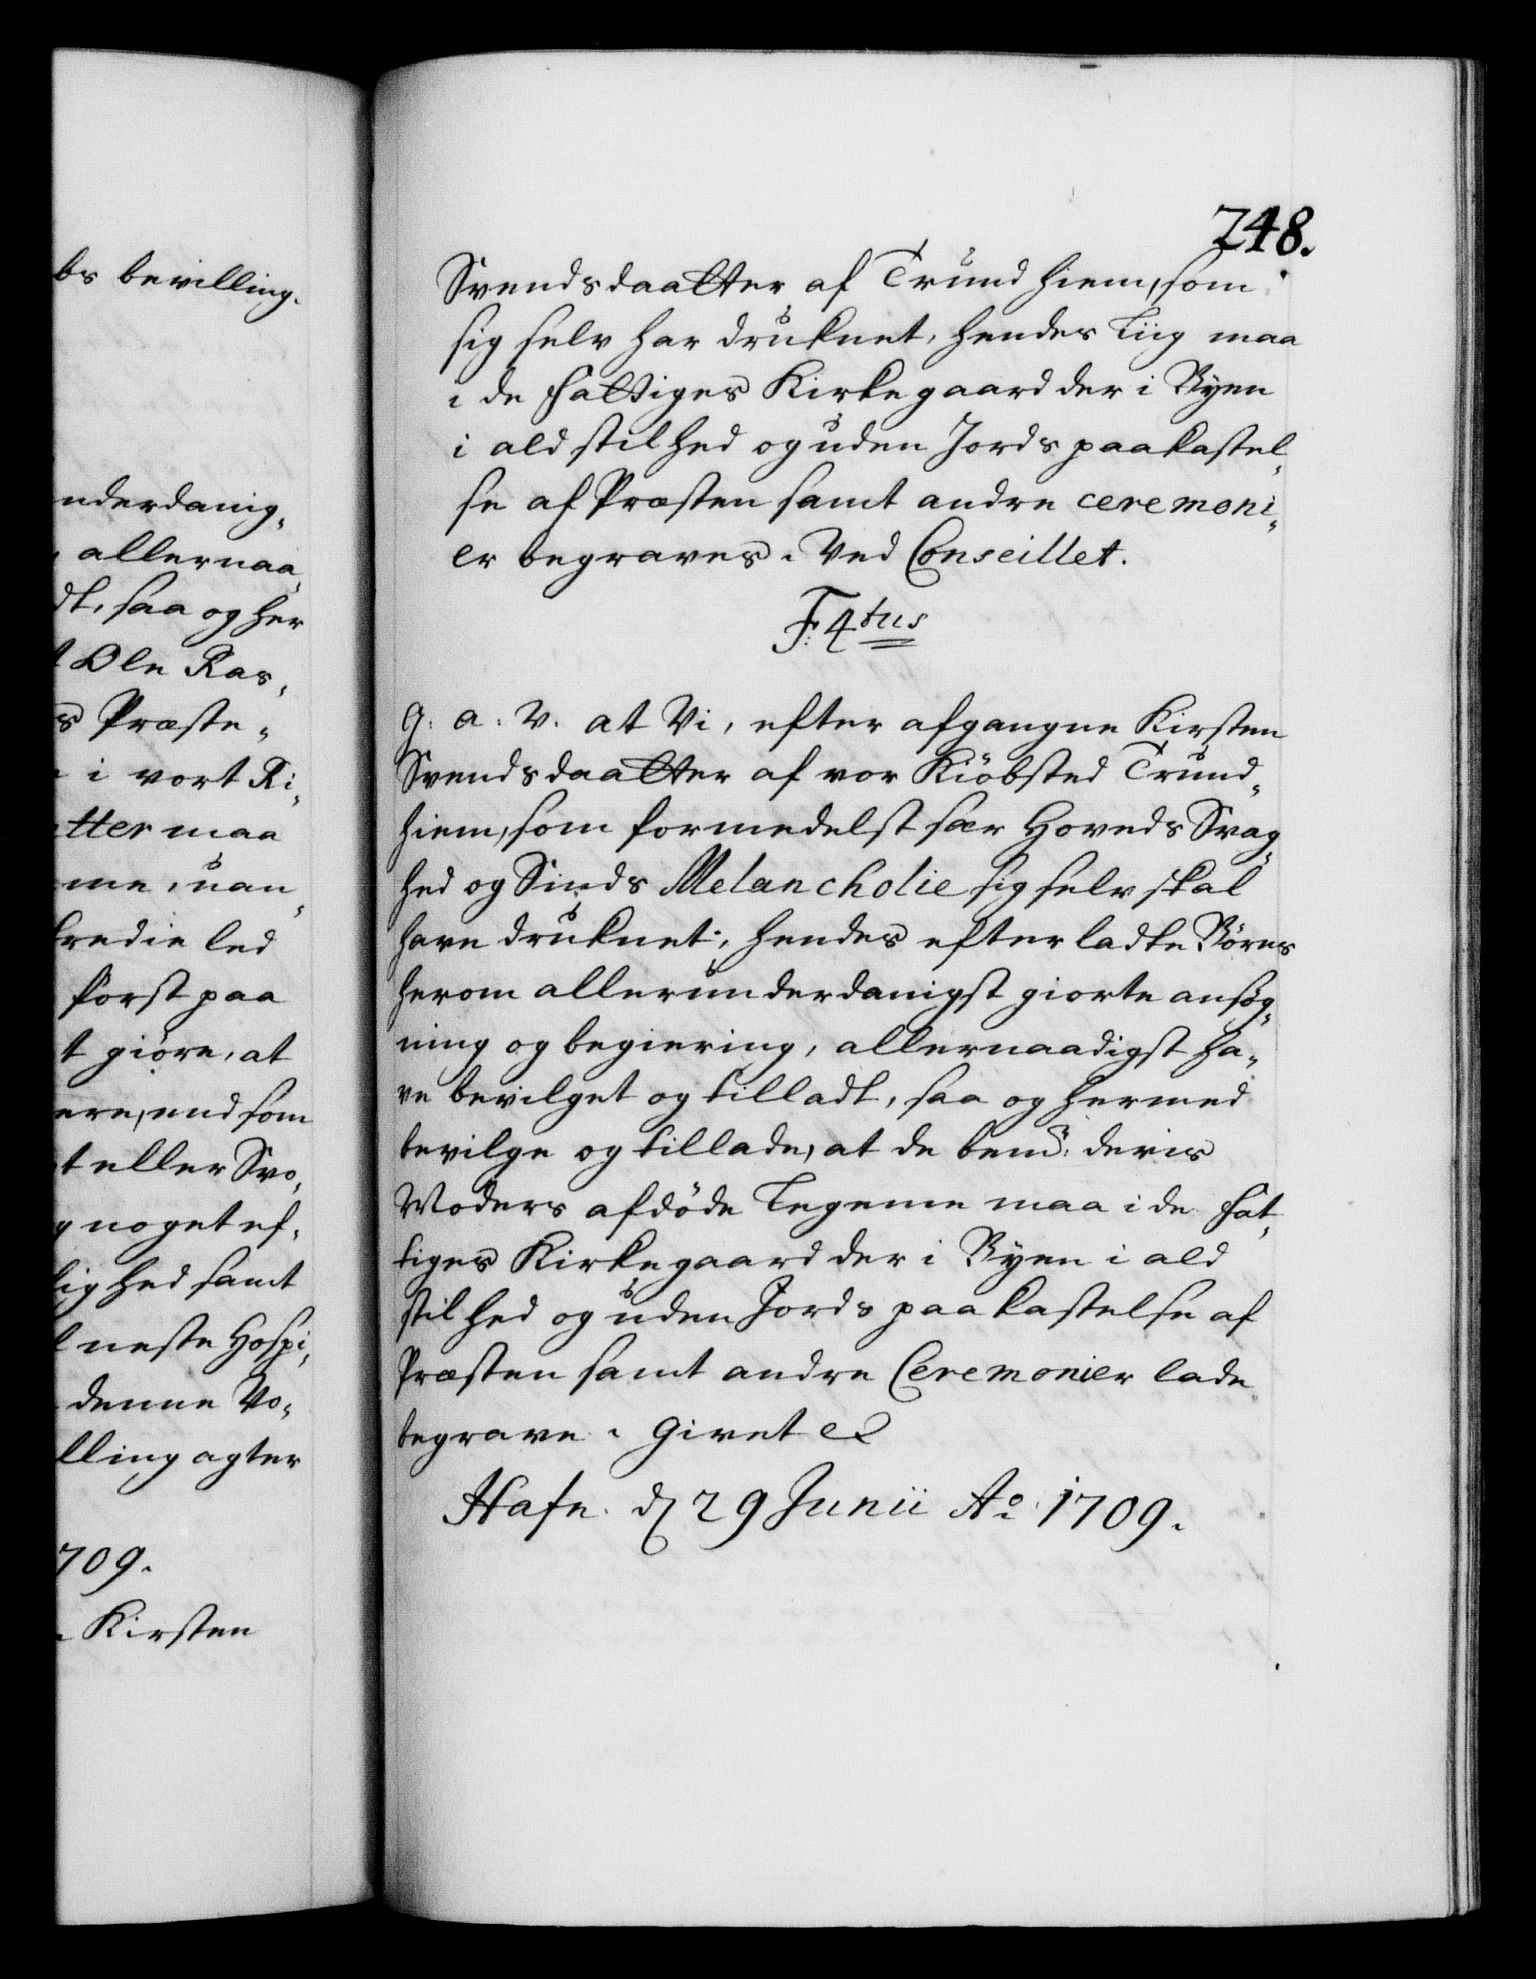 bs bevilling.
nderdanig„
, allernaa„
dt, saa og her
t Ole Ras„
s Præste„
i vort Ri„
tter maa
me, uan„
tredie led
forst paa
t giøre, at
ere, end som
t eller Svo„
g noget ef„
lighed samt
l neste Hospi„
denne Vo„
lling agter
709.
. Kirsten
248.
Svendsdaatter af Trundhiem, som
sig selv har druknet, hendes Liig maa
i de Fattiges Kirkegaard der i Byen
i ald stilhed og uden Jords paakastel„
se af Præsten samt andre ceremoni„
er begraves. Ved Conseillet.
F: 4tus
G: a: V. at Vi, efter afgangne Kirsten
Svendsdaatter af vor Kiöbsted Trund„
hiem, som formedelst sær Hoveds Svag„
hed og Sinds Melancholie sig selv skal
have druknet, hendes efterladte Börns
herom allerunderdanigst giorte ansøg„
ning og begiering, allernaadigst ha„
ve bevilget og tilladt, saa og hermed
bevilge og tillade, at de bemte: deris
Moders afdöde Legeme maa i de Fat„
tiges Kirkegaard der i Byen i ald
stilhed og uden Jords paakastelse af
Præsten samt andre Ceremonier lade
begrave. Givet etc
Hafn. d 29 Junii Ao 1709.